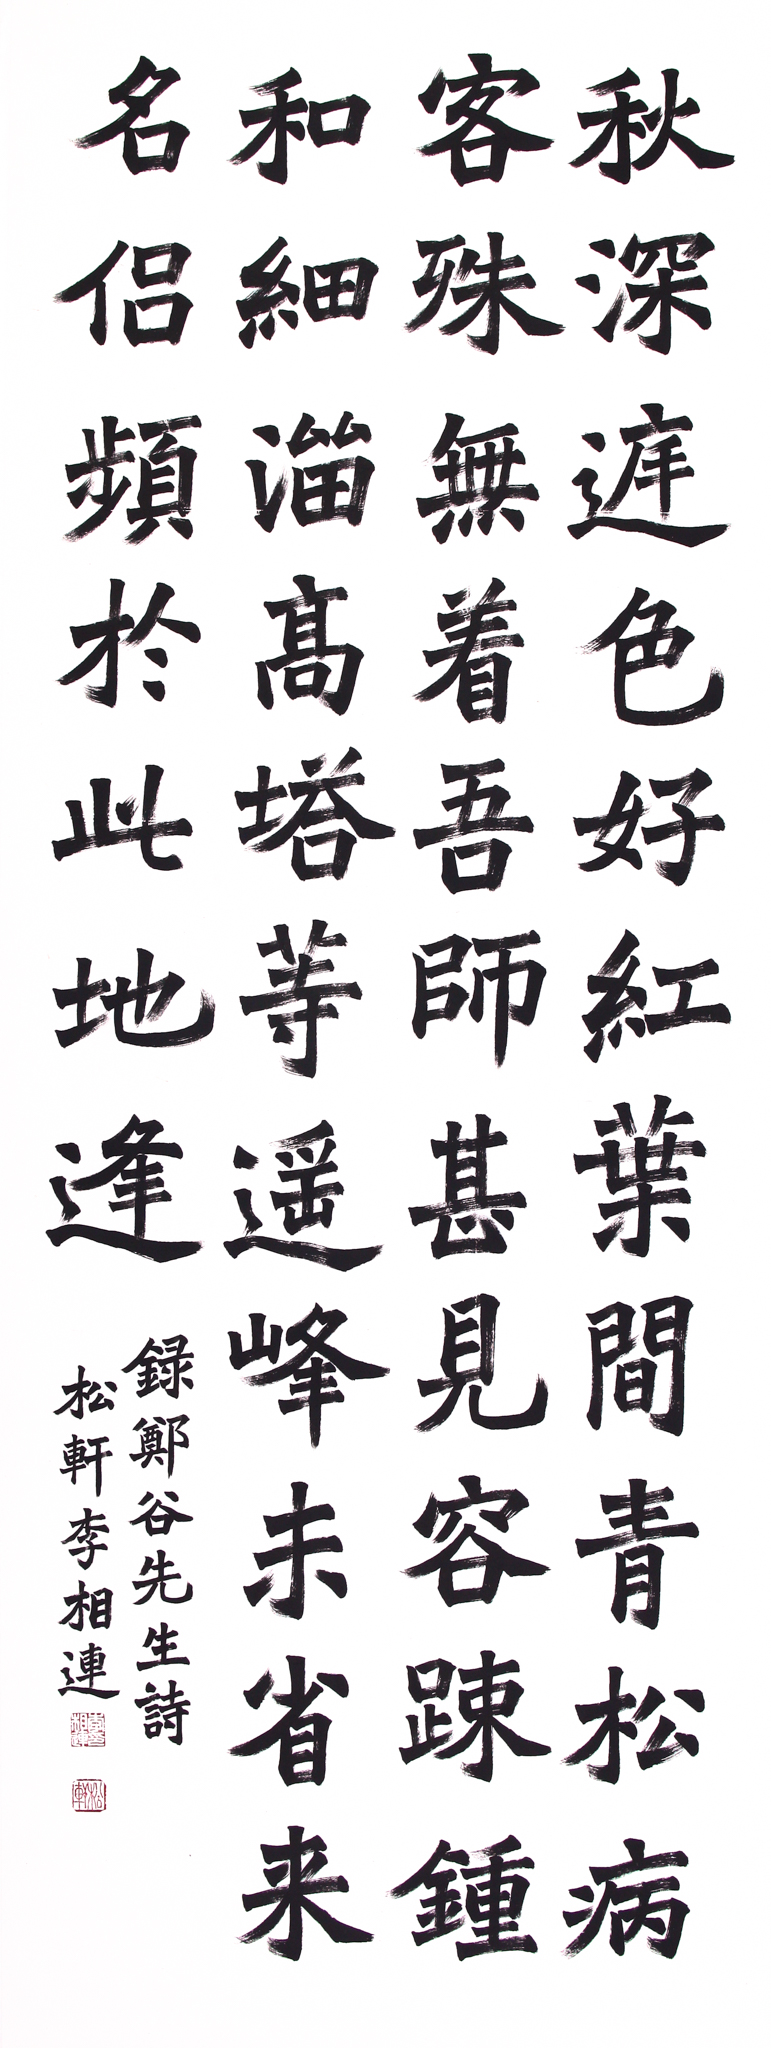 秋深庭色好紅葉間青松病
客殊無着吾師甚見容踈鍾
和細淄髙塔等遥峰未省来
名侶頻於此地逢
録鄭谷先生詩
松軒李相連